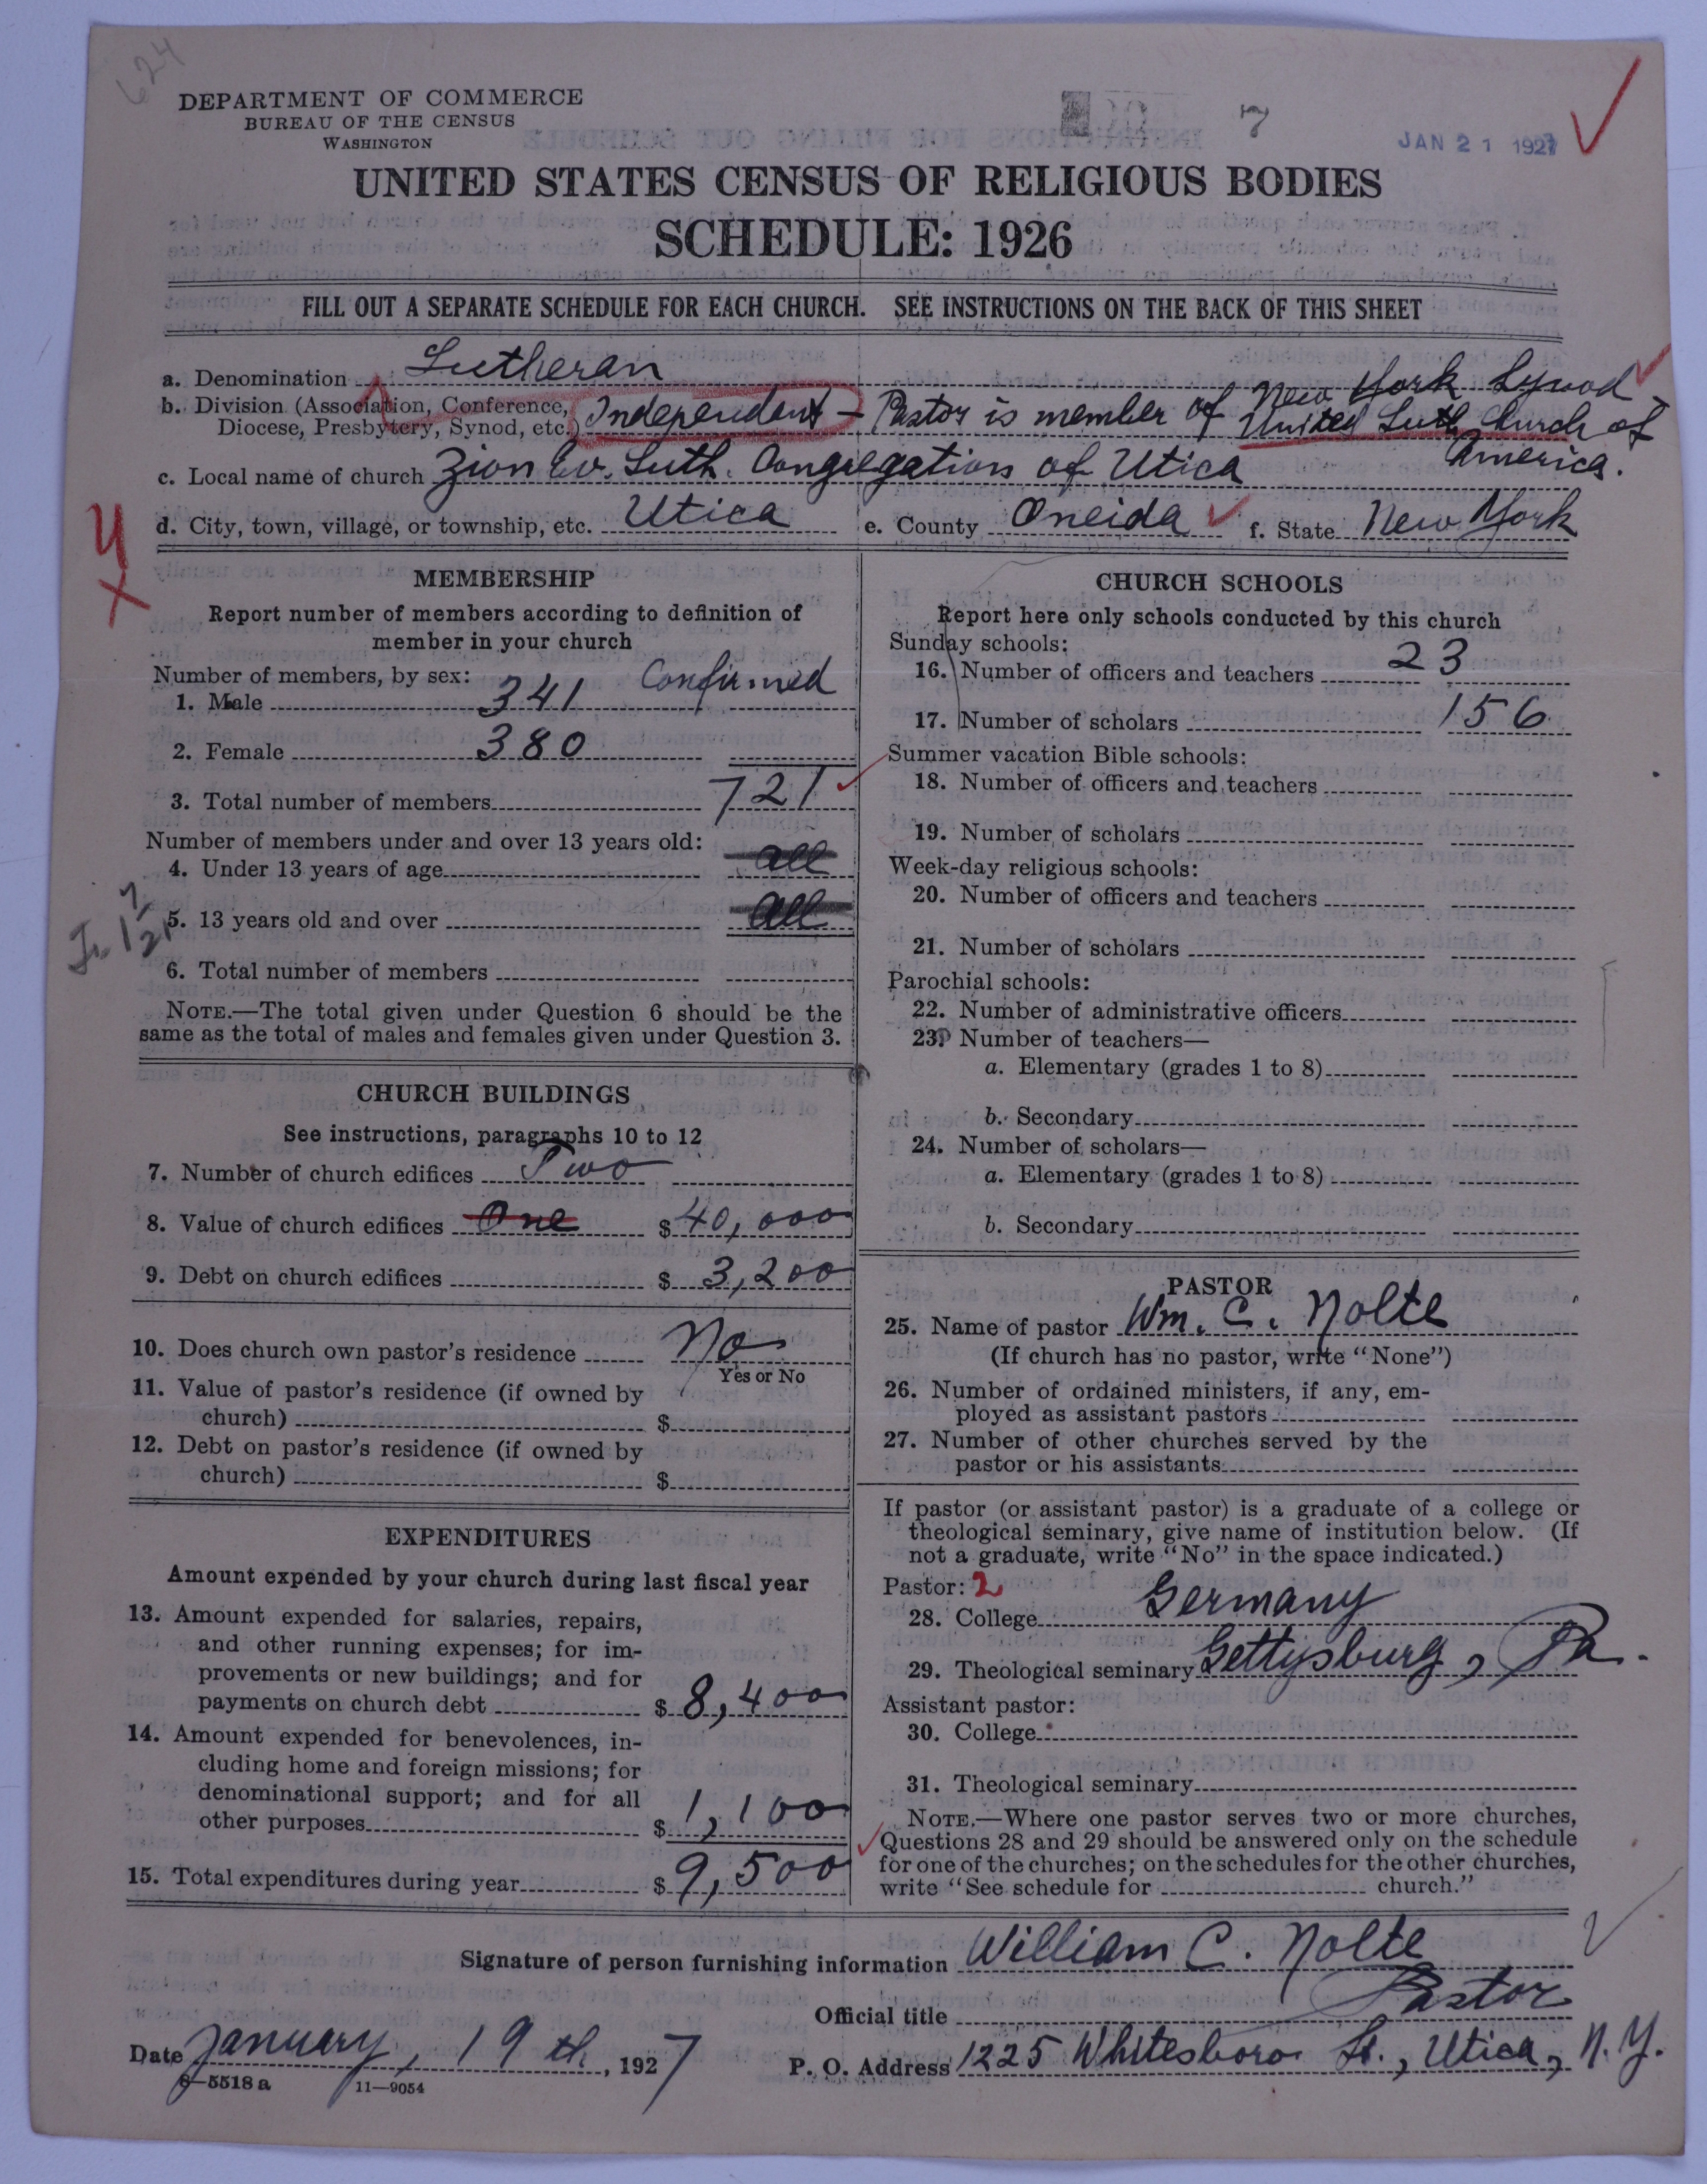 624
DEPARTMENT OF COMMERCE
BUREAU OF THE CENSUS
WASHINGTON
7
JAN 21 1927
UNITED STATES CENSUS OF RELIGIOUS BODIES
SCHEDULE: 1926
FILL OUT A SEPARATE SCHEDULE FOR EACH CHURCH. SEE INSTRUCTIONS ON THE BACK OF THIS SHEET
a. Denomination Lutheran
b. Division (Association, Conference, Diocese, Presbytery, Synod, etc.) Independent – Pastor is member of New York Synod
United Luth. Church of
America.
c. Local name of church Zion Ev. Luth. Congregation of Utica
d. City, town, village, or township, etc. Utica e. County Oneida f. State New York
MEMBERSHIP
Report number of members according to definition of
member in your church
Number of members, by sex: Confirmed
1. Male 341
2. Female 380
3. Total number of members 721
Number of members under and over 13 years old:
4. Under 13 years of age all
5. 13 years old and over all
6. Total number of members
NOTE.—The total given under Question 6 should be the
same as the total of males and females given under Question 3.
CHURCH BUILDINGS
See instructions, paragraphs 10 to 12
7. Number of church edifices Two
8. Value of church edifices One $40,000
9. Debt on church edifices $3,200
10. Does church own pastor's residence No
Yes or No
11. Value of pastor's residence (if owned by
church) $
12. Debt on pastor's residence (if owned by
church) $
EXPENDITURES
Amount expended by your church during last fiscal year
13. Amount expended for salaries, repairs,
and other running expenses; for im-
provements or new buildings; and for
payments on church debt $8,400
14. Amount expended for benevolences, in-
cluding home and foreign missions; for
denominational support; and for all
other purposes $1,100
15. Total expenditures during year $9,500
CHURCH SCHOOLS
Report here only schools conducted by this church
Sunday schools:
16. Number of officers and teachers 23
17. Number of scholars 156
Summer vacation Bible schools:
18. Number of officers and teachers
19. Number of scholars
Week-day religious schools:
20. Number of officers and teachers
21. Number of scholars
Parochial schools:
22. Number of administrative officers
23. Number of teachers—
a. Elementary (grades 1 to 8)
b. Secondary
24. Number of scholars—
a. Elementary (grades 1 to 8)
b. Secondary
PASTOR
25. Name of pastor Wm. C. Nolte
(If church has no pastor, write "None")
26. Number of ordained ministers, if any, em-
ployed as assistant pastors
27. Number of other churches served by the
pastor or his assistants
If pastor (or assistant pastor) is a graduate of a college or
theological seminary, give name of institution below. (If
not a graduate, write "No" in the space indicated.)
Pastor: 2
28. College Germany
29. Theological seminary Gettysburg, Pa.
Assistant pastor:
30. College
31. Theological seminary
NOTE.—Where one pastor serves two or more churches,
Questions 28 and 29 should be answered only on the schedule
for one of the churches; on the schedules for the other churches,
write "See schedule for church."
Signature of person furnishing information William C. Nolte
Official title Pastor
Date January, 19th, 1927 P. O. Address 1225 Whitesboro St., Utica, N.Y.
8—5518a 11—9054